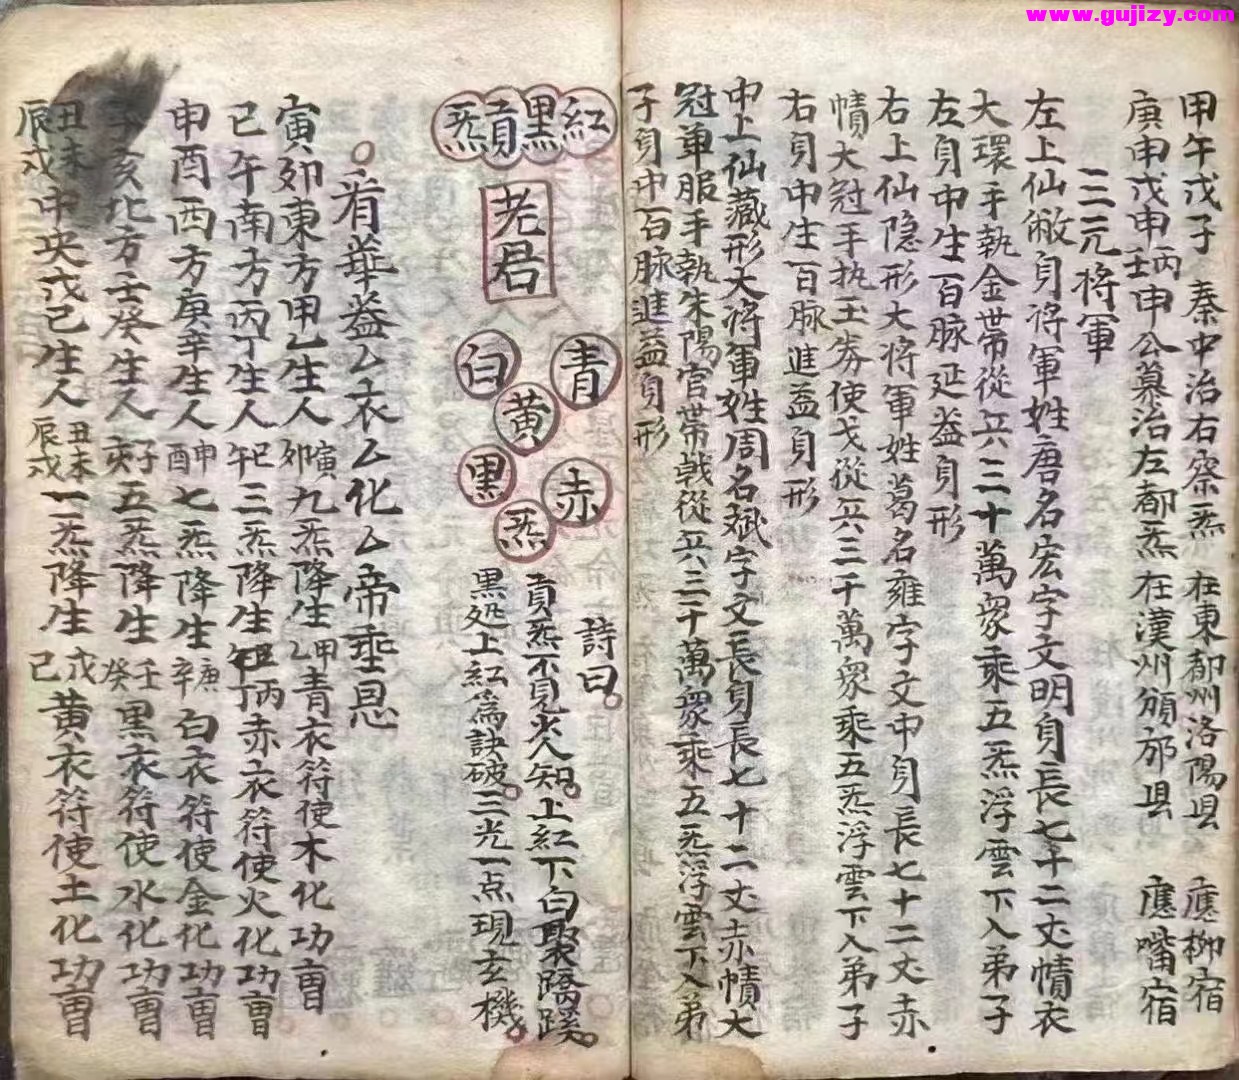 www.gujizy.com
甲午戊子 秦中治右察炁 在東都州洛陽县 應柳宿
庚申戊申丙壬申公慕治左都炁在漢州頒邡县 應嘴宿
三元将軍
左上仙敝身将軍姓唐名宏字文明身長七十二丈幘衣
大環手執金带從兵三十萬眾乘五炁浮雲下入弟子
左身中生百脉延益身形
右上仙隐形大将軍姓葛名雍字文中身長七十二丈赤
幘大冠手执玉券使戈從兵三千萬眾乘五炁浮雲下入弟子
右身中生百脉進益身形
中上仙藏形大将軍姓周名斌字文長身長七十二丈赤幘大
冠單服手執朱陽官带戟從兵三十萬眾乘五炁浮雲下入弟
子身中百脉進益身形
紅黑貢炁
老君
青白黄赤黑炁
詩曰
貢炁不見火人知上紅下白聚蹻蹊
黑処上紅為訣破三光一点現玄機
看華蓋厶衣厶化厶帝垂恩
寅卯東方甲乙生人寅卯九炁降生甲乙青衣符使木化功曹
巳午南方丙丁生人巳午三炁降生丙丁赤衣符使火化功曹
申酉西方庚辛生人申酉七炁降生庚辛白衣符使金化功曹
子亥北方壬癸生人子亥五炁降生壬癸黑衣符使水化功曹
丑未辰戌中央戊己生人丑未辰戌一炁降生戊己黄衣符使土化功曹